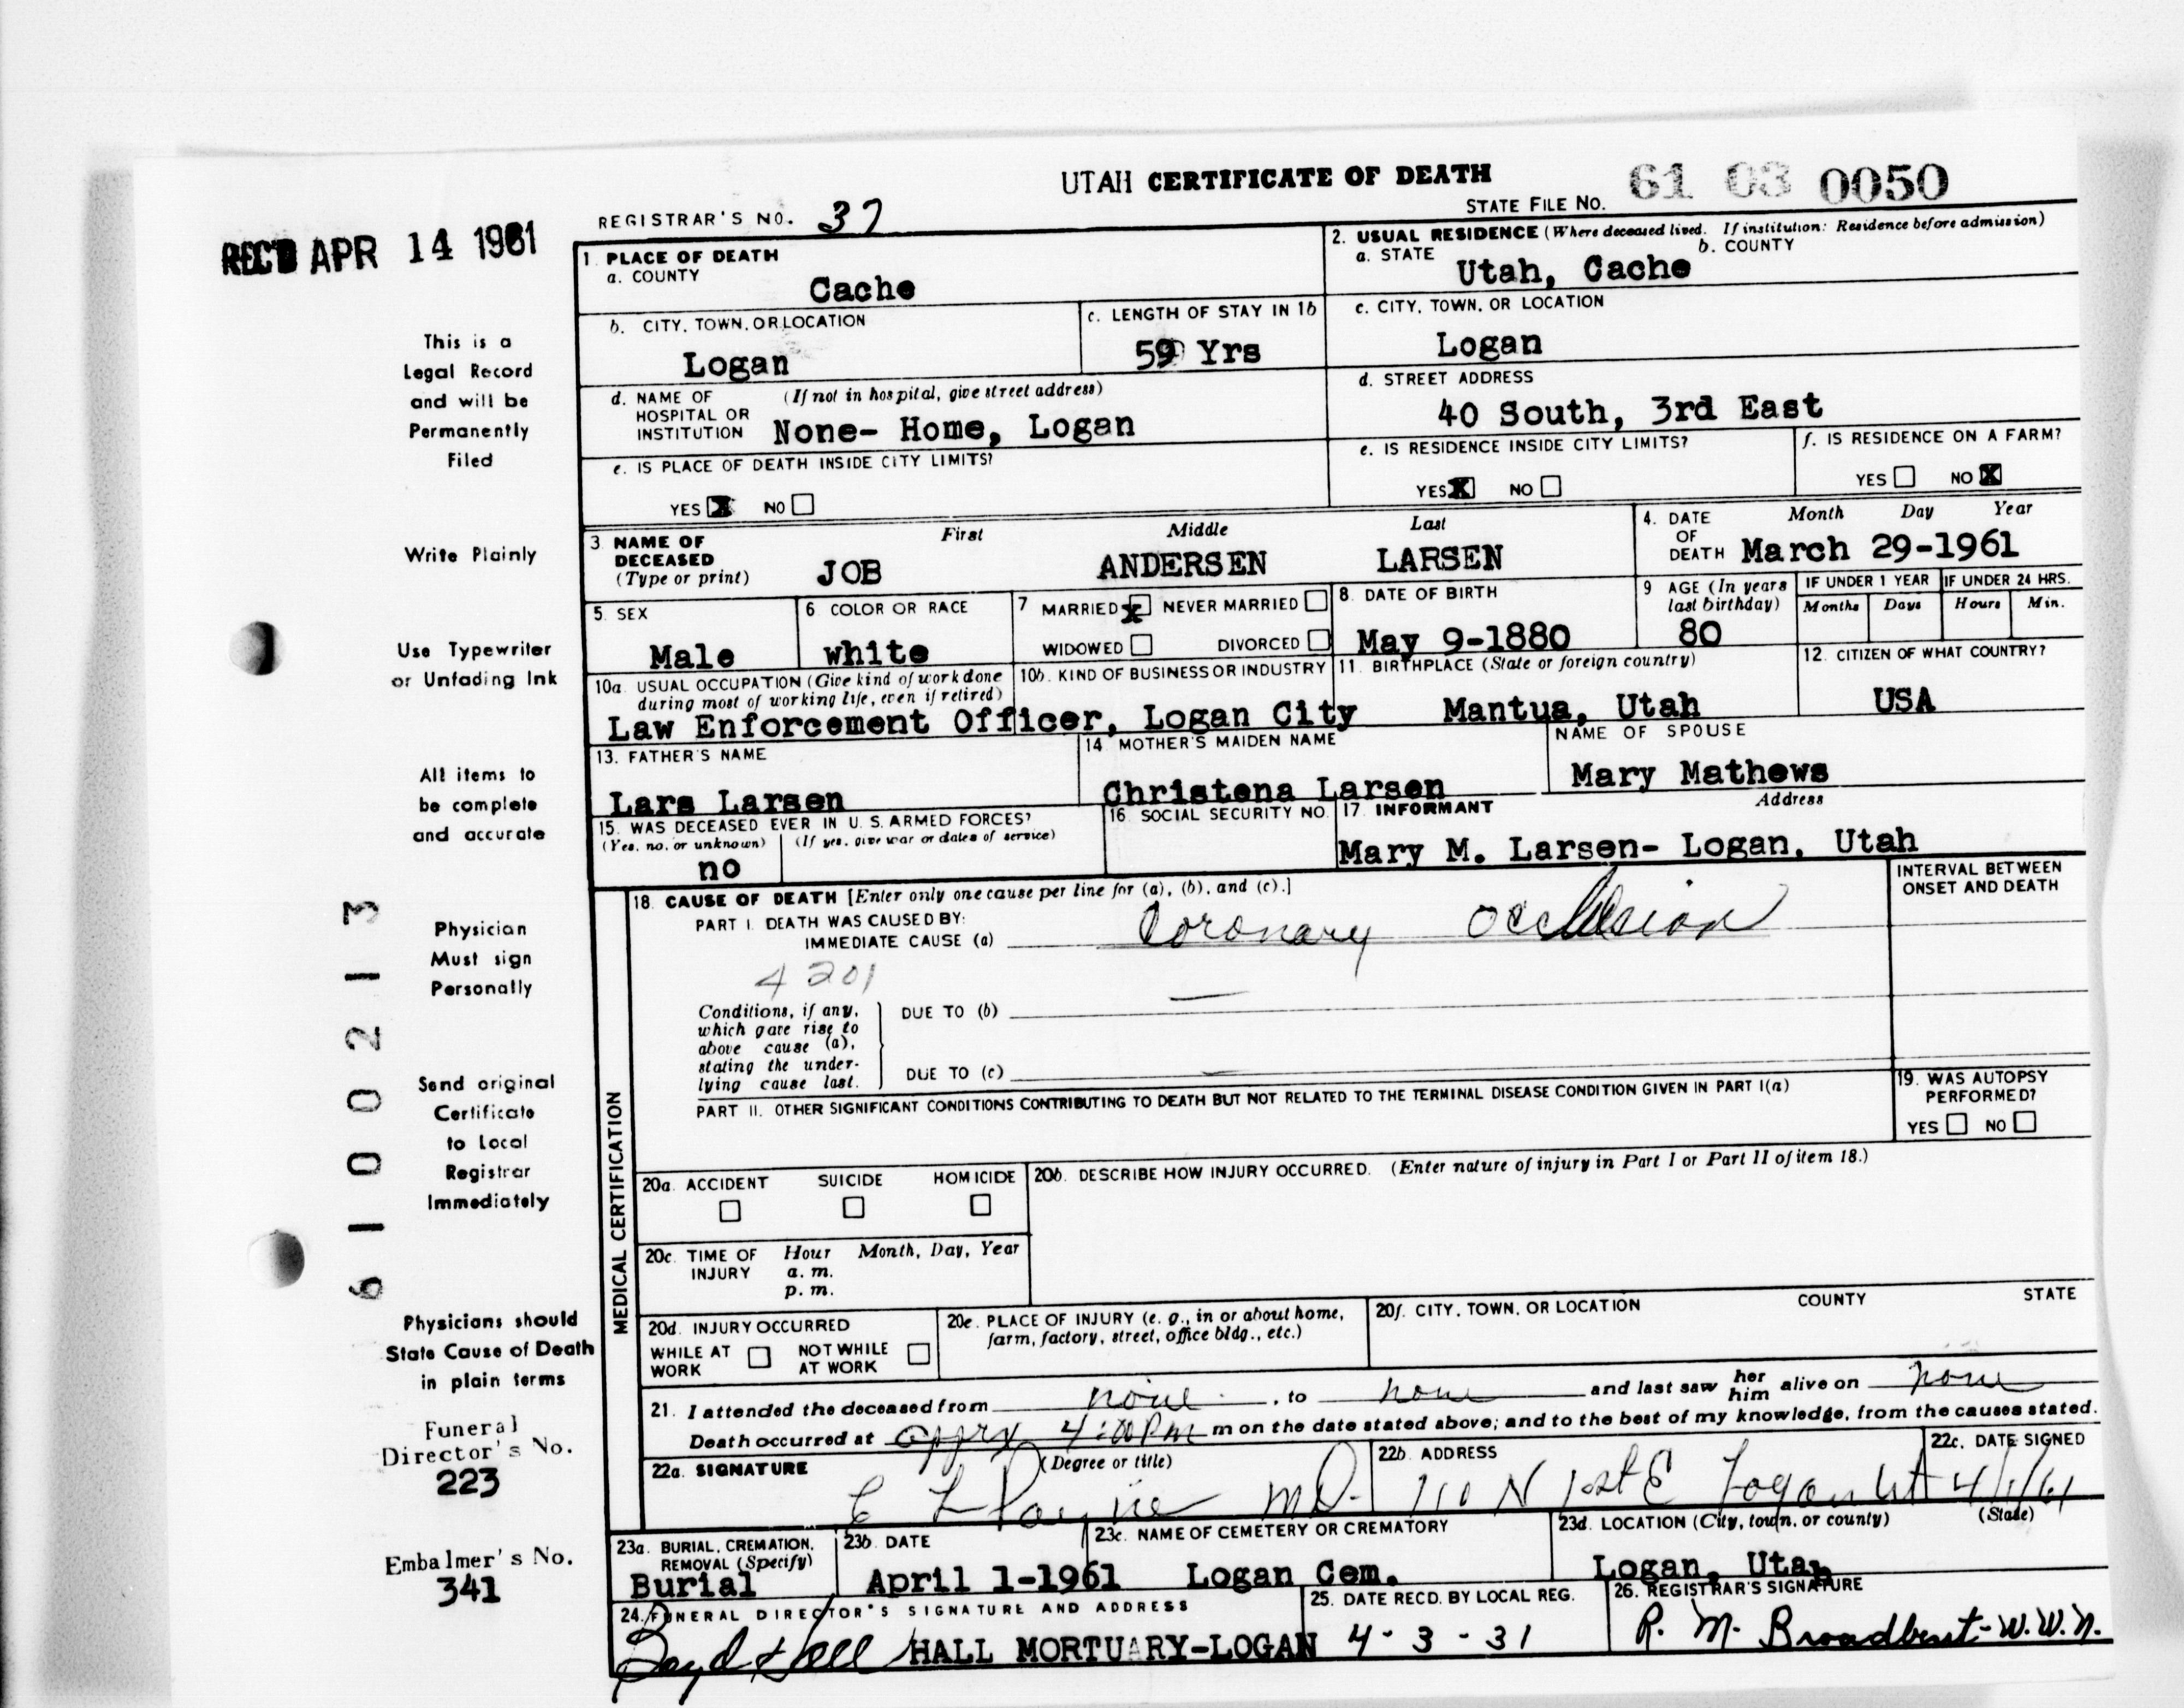 UTAH CERTIFICATE OF DEATH
STATE FILE No. 61 03 0050
REGISTRAR'S NO. 37
REC'D APR 14 1961
1. PLACE OF DEATH
a. COUNTY
Cache
2. USUAL RESIDENCE (Where deceased lived. If institution: Residence before admission)
a. STATE b. COUNTY
Utah, Cache
b. CITY, TOWN, OR LOCATION
Logan
c. LENGTH OF STAY IN 1b
59 Yrs
c. CITY, TOWN, OR LOCATION
Logan
d. NAME OF HOSPITAL OR INSTITUTION (If not in hospital, give street address)
None- Home, Logan
d. STREET ADDRESS
40 South, 3rd East
e. IS PLACE OF DEATH INSIDE CITY LIMITS?
YES X NO
e. IS RESIDENCE INSIDE CITY LIMITS?
YES X NO
f. IS RESIDENCE ON A FARM?
YES NO X
3. NAME OF DECEASED (Type or print)
First Middle Last
JOB ANDERSEN LARSEN
4. DATE OF DEATH Month Day Year
March 29-1961
5. SEX
Male
6 COLOR OR RACE
white
7 MARRIED X NEVER MARRIED
WIDOWED DIVORCED
8. DATE OF BIRTH
May 9-1880
9 AGE (In years last birthday)
80
IF UNDER 1 YEAR
Months Days
IF UNDER 24 HRS.
Hours Min.
10a. USUAL OCCUPATION (Give kind of work done during most of working life, even if retired)
10b. KIND OF BUSINESS OR INDUSTRY
Law Enforcement Officer, Logan City
11. BIRTHPLACE (State or foreign country)
Mantua, Utah
12. CITIZEN OF WHAT COUNTRY?
USA
13. FATHER'S NAME
Lars Larsen
14. MOTHER'S MAIDEN NAME
Christena Larsen
NAME OF SPOUSE
Mary Mathews
15. WAS DECEASED EVER IN U. S. ARMED FORCES?
(Yes, no, or unknown) (If yes, give war or dates of service)
no
16. SOCIAL SECURITY NO.
17. INFORMANT Address
Mary M. Larsen- Logan, Utah
MEDICAL CERTIFICATION
18. CAUSE OF DEATH [Enter only one cause per line for (a), (b), and (c).]
INTERVAL BETWEEN ONSET AND DEATH
PART I. DEATH WAS CAUSED BY:
IMMEDIATE CAUSE (a) Coronary Occlusion
4201
Conditions, if any, which gave rise to above cause (a), stating the underlying cause last.
DUE TO (b) —
DUE TO (c) —
PART II. OTHER SIGNIFICANT CONDITIONS CONTRIBUTING TO DEATH BUT NOT RELATED TO THE TERMINAL DISEASE CONDITION GIVEN IN PART I(a)
19. WAS AUTOPSY PERFORMED?
YES NO
20a. ACCIDENT SUICIDE HOMICIDE
20b. DESCRIBE HOW INJURY OCCURRED. (Enter nature of injury in Part I or Part II of item 18.)
20c. TIME OF INJURY Hour Month, Day, Year
a. m.
p. m.
20d. INJURY OCCURRED
WHILE AT WORK NOT WHILE AT WORK
20e. PLACE OF INJURY (e. g., in or about home, farm, factory, street, office bldg., etc.)
20f. CITY, TOWN, OR LOCATION COUNTY STATE
21. I attended the deceased from none, to none and last saw her him alive on none
Death occurred at apprx 4:00 PM m on the date stated above; and to the best of my knowledge, from the causes stated.
22a. SIGNATURE (Degree or title)
MD.
22b. ADDRESS
110 N 1st E Logan Ut
22c. DATE SIGNED
4/1/61
23a. BURIAL, CREMATION, REMOVAL (Specify)
Burial
23b. DATE
April 1-1961
23c. NAME OF CEMETERY OR CREMATORY
Logan Cem.
23d. LOCATION (City, town, or county) (State)
Logan, Utah
24. FUNERAL DIRECTOR'S SIGNATURE AND ADDRESS
Boyd Hall HALL MORTUARY-LOGAN
25. DATE RECD. BY LOCAL REG.
4-3-31
26. REGISTRAR'S SIGNATURE
R. M. Broadbent-W.W.N.
This is a
Legal Record
and will be
Permanently
Filed
Write Plainly
Use Typewriter
or Unfading Ink
All items to
be complete
and accurate
Physician
Must sign
Personally
Send original
Certificate
to Local
Registrar
Immediately
Physicians should
State Cause of Death
in plain terms
Funeral
Director's No.
223
Embalmer's No.
341
61 00213